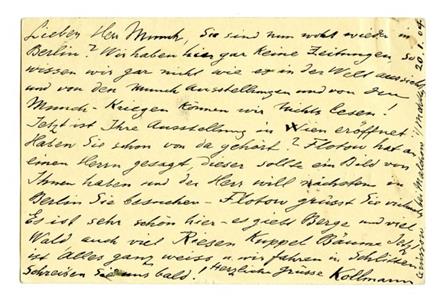 Lieber Herr Munch, Sie sind nun wohl wieder in
Berlin? Wir haben hier gar keine Zeitungen so
wissen wir gar nicht wie es in der Welt aussieht
und von den Munch Ausstellungen und von den
Munch-Kriegen können wir nichts lesen!
Jetzt ist Ihre Ausstellung in Wien eröffnet
Haben Sie schon von da gehört? Flotow hat an
einen Herrn gesagt, dieser sollte ein Bild von
Ihnen haben und der Herr will nächstens in
Berlin Sie besuchen - Flotow grüsst Sie
Es ist sehr schön hier - es giebt Berge und viel
Wald auch viel Riesen Kuppel Bäume Jetzt
ist Alles ganz weiss u. wir fahren in Schlitten
Schreiben Sie uns bald! Herzliche Grüsse Kollmann
20.1.04